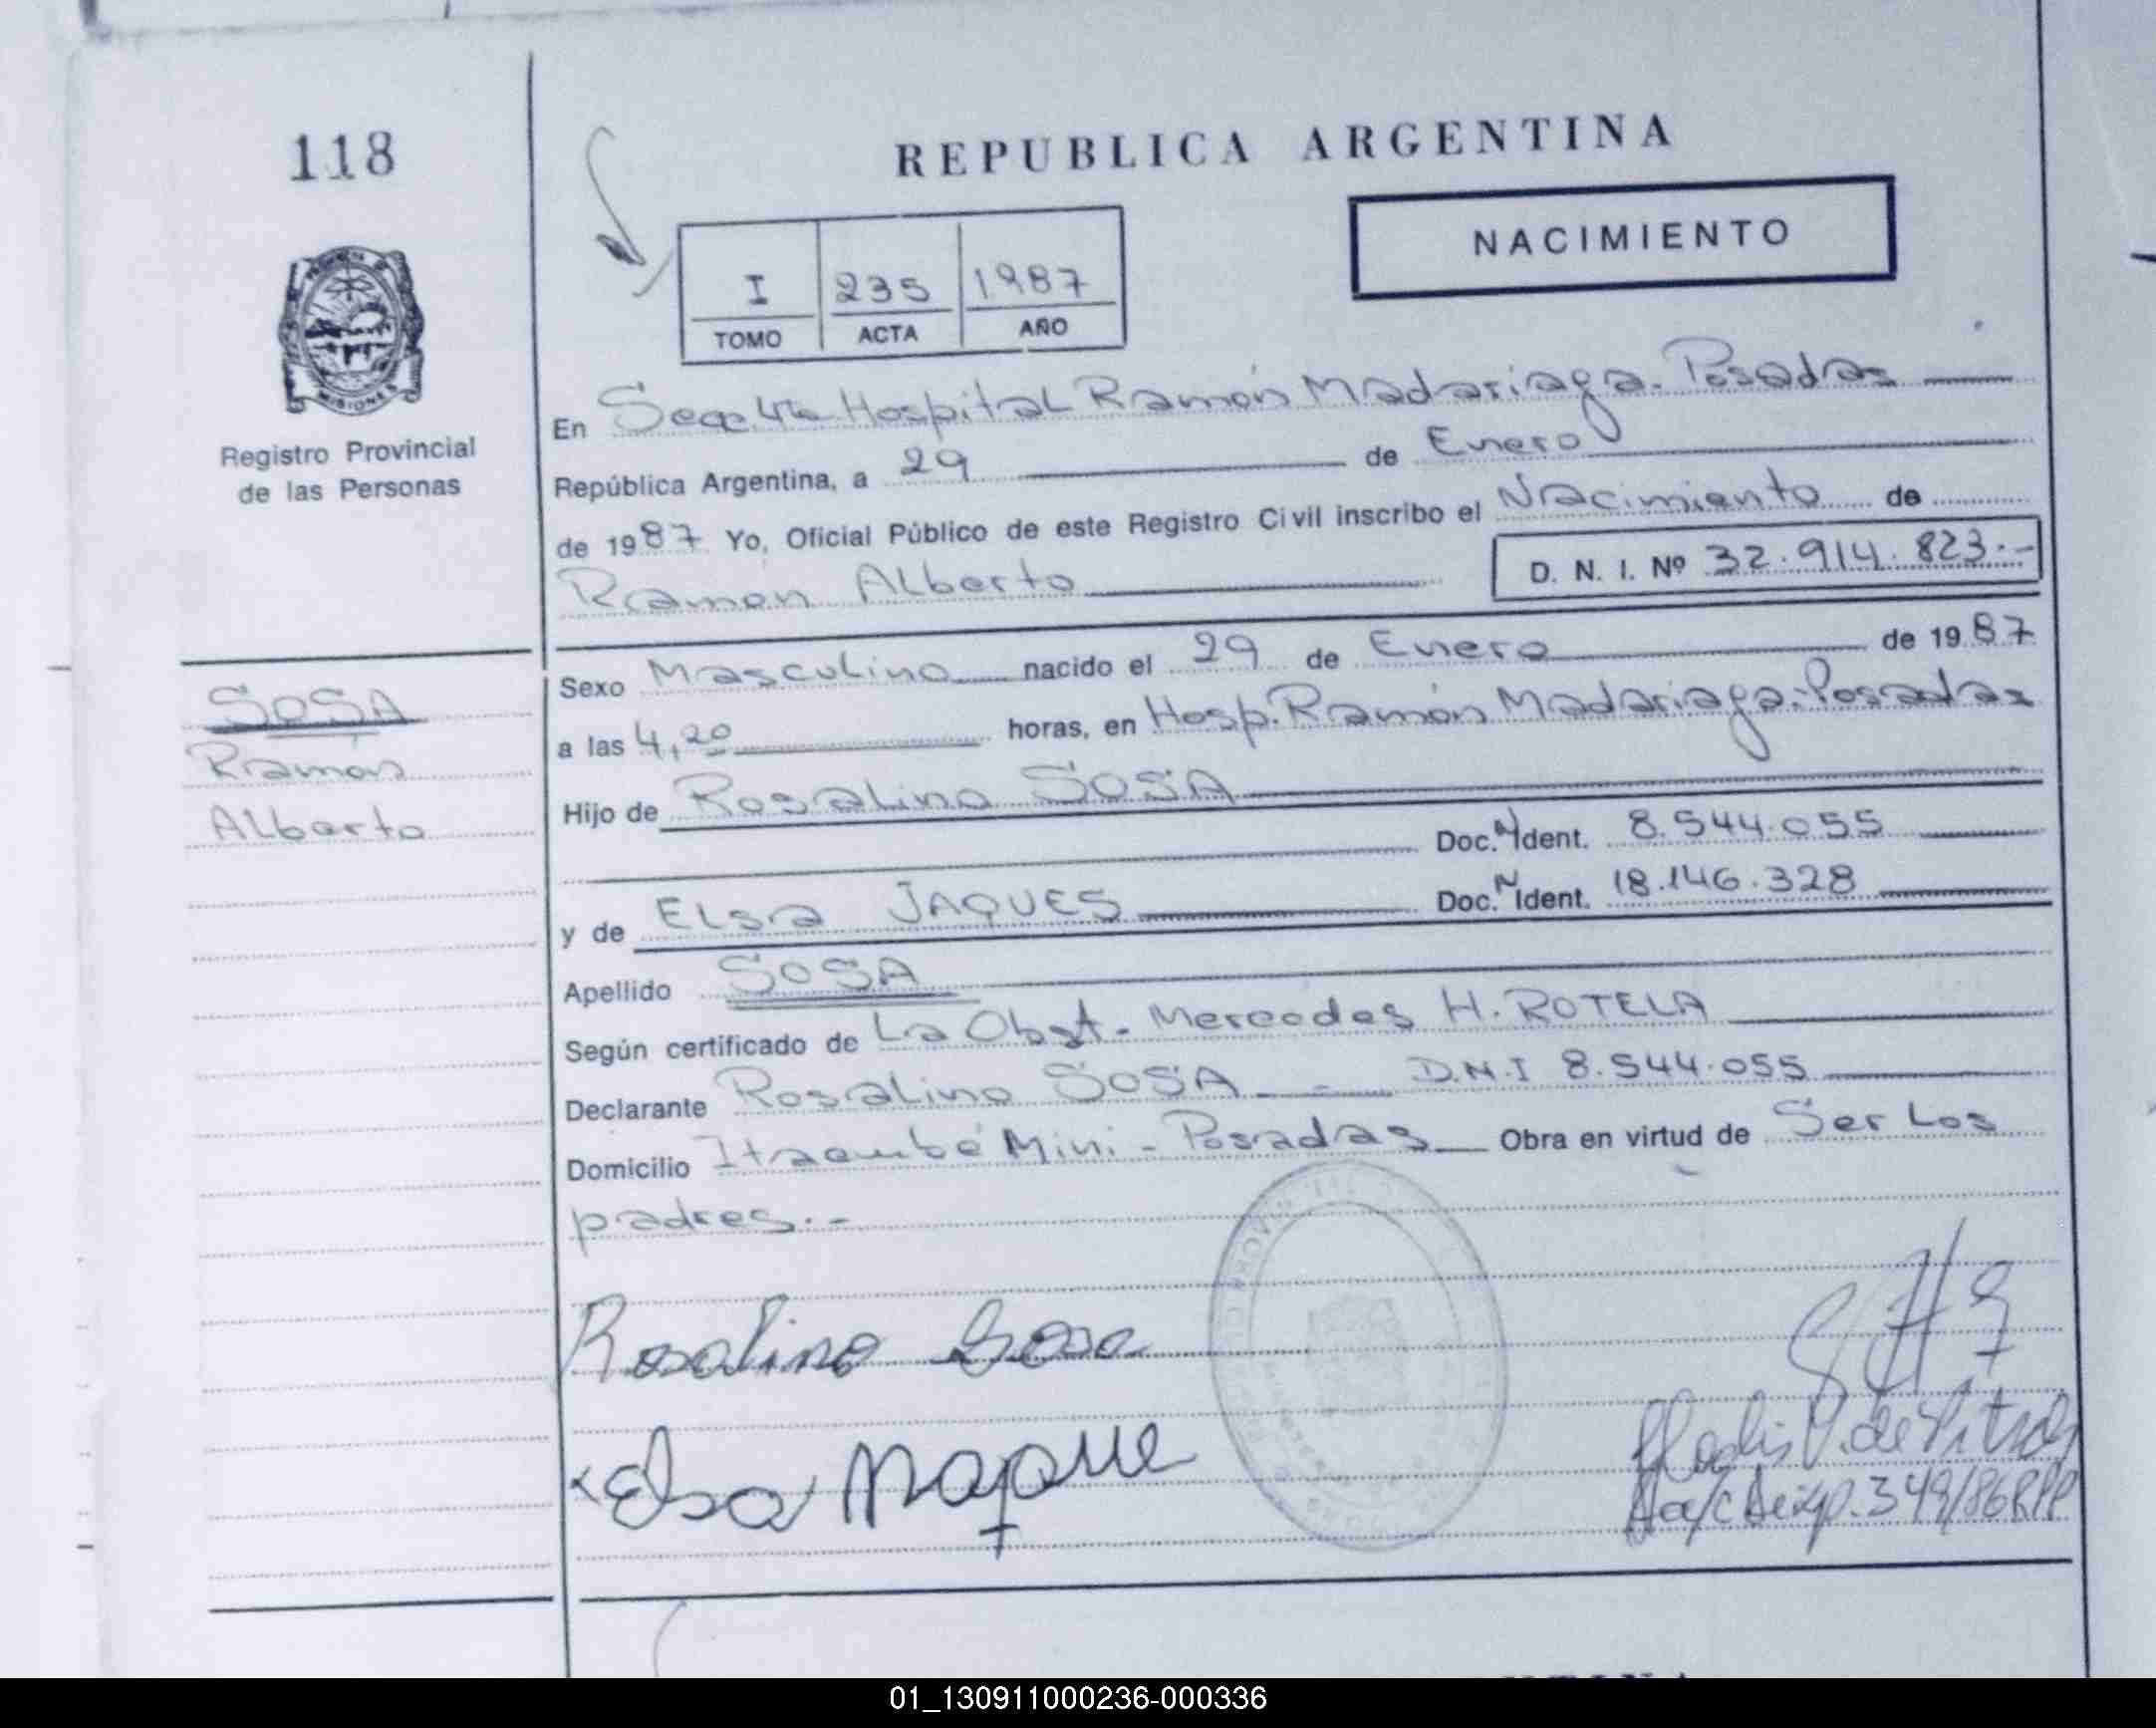 118
REPUBLICA ARGENTINA
NACIMIENTO
I 235 1987
TOMO ACTA AÑO
MISIONES
Registro Provincial
de las Personas
En Secc. 4ta Hospital Ramón Madariaga - Posadas
República Argentina, a 29 de Enero
de 1987 Yo, Oficial Público de este Registro Civil inscribo el Nacimiento de
Ramon Alberto D. N. I. Nº 32.914.823.-
SOSA
Ramón
Alberto
Sexo Masculino nacido el 29 de Enero de 1987
a las 4,20 horas, en Hosp. Ramón Madariaga - Posadas
Hijo de Rosalino SOSA
Doc. N Ident. 8.544.055
y de Elsa JAQUES Doc. N Ident. 18.146.328
Apellido SOSA
Según certificado de La Obst. Mercedes H. ROTELA
Declarante Rosalino SOSA - D.N.I 8.544.055
Domicilio Itaembé Mini - Posadas Obra en virtud de Ser Los
padres.-
Rosalino Sosa
Elsa
349/86 RPP
01_130911000236-000336